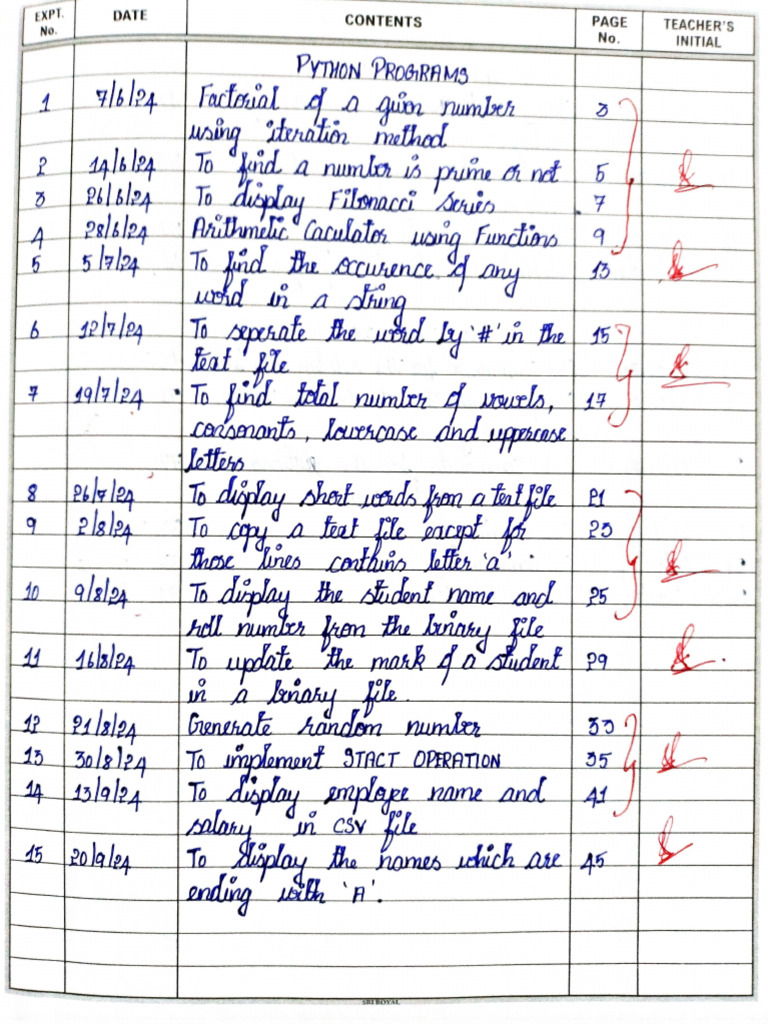 EXPT. No. DATE CONTENTS PAGE No. TEACHER'S INITIAL
PYTHON PROGRAMS
1 7/6/24 Factorial of a given number 3
using iteration method
2 14/6/24 To find a number is prime or not 5
3 26/6/24 To display Fibonacci series 7
4 28/6/24 Arithmetic Caculator using Functions 9
5 5/7/24 To find the occurence of any 13
word in a string
6 12/7/24 To seperate the word by '#' in the 15
text file
7 19/7/24 To find total number of vowels, 17
consonants, lowercase and uppercase
letters
8 26/7/24 To display short words from a text file 21
9 2/8/24 To copy a text file except for 23
those lines contains letter 'a'.
10 9/8/24 To display the student name and 25
roll number from the binary file
11 16/8/24 To update the mark of a student 29
in a binary file.
12 21/8/24 Generate random number 33
13 30/8/24 To implement STACT OPERATION 35
14 13/9/24 To display employee name and 41
salary in CSV file
15 20/9/24 To display the names which are 45
ending with 'A'.
SRI ROYAL